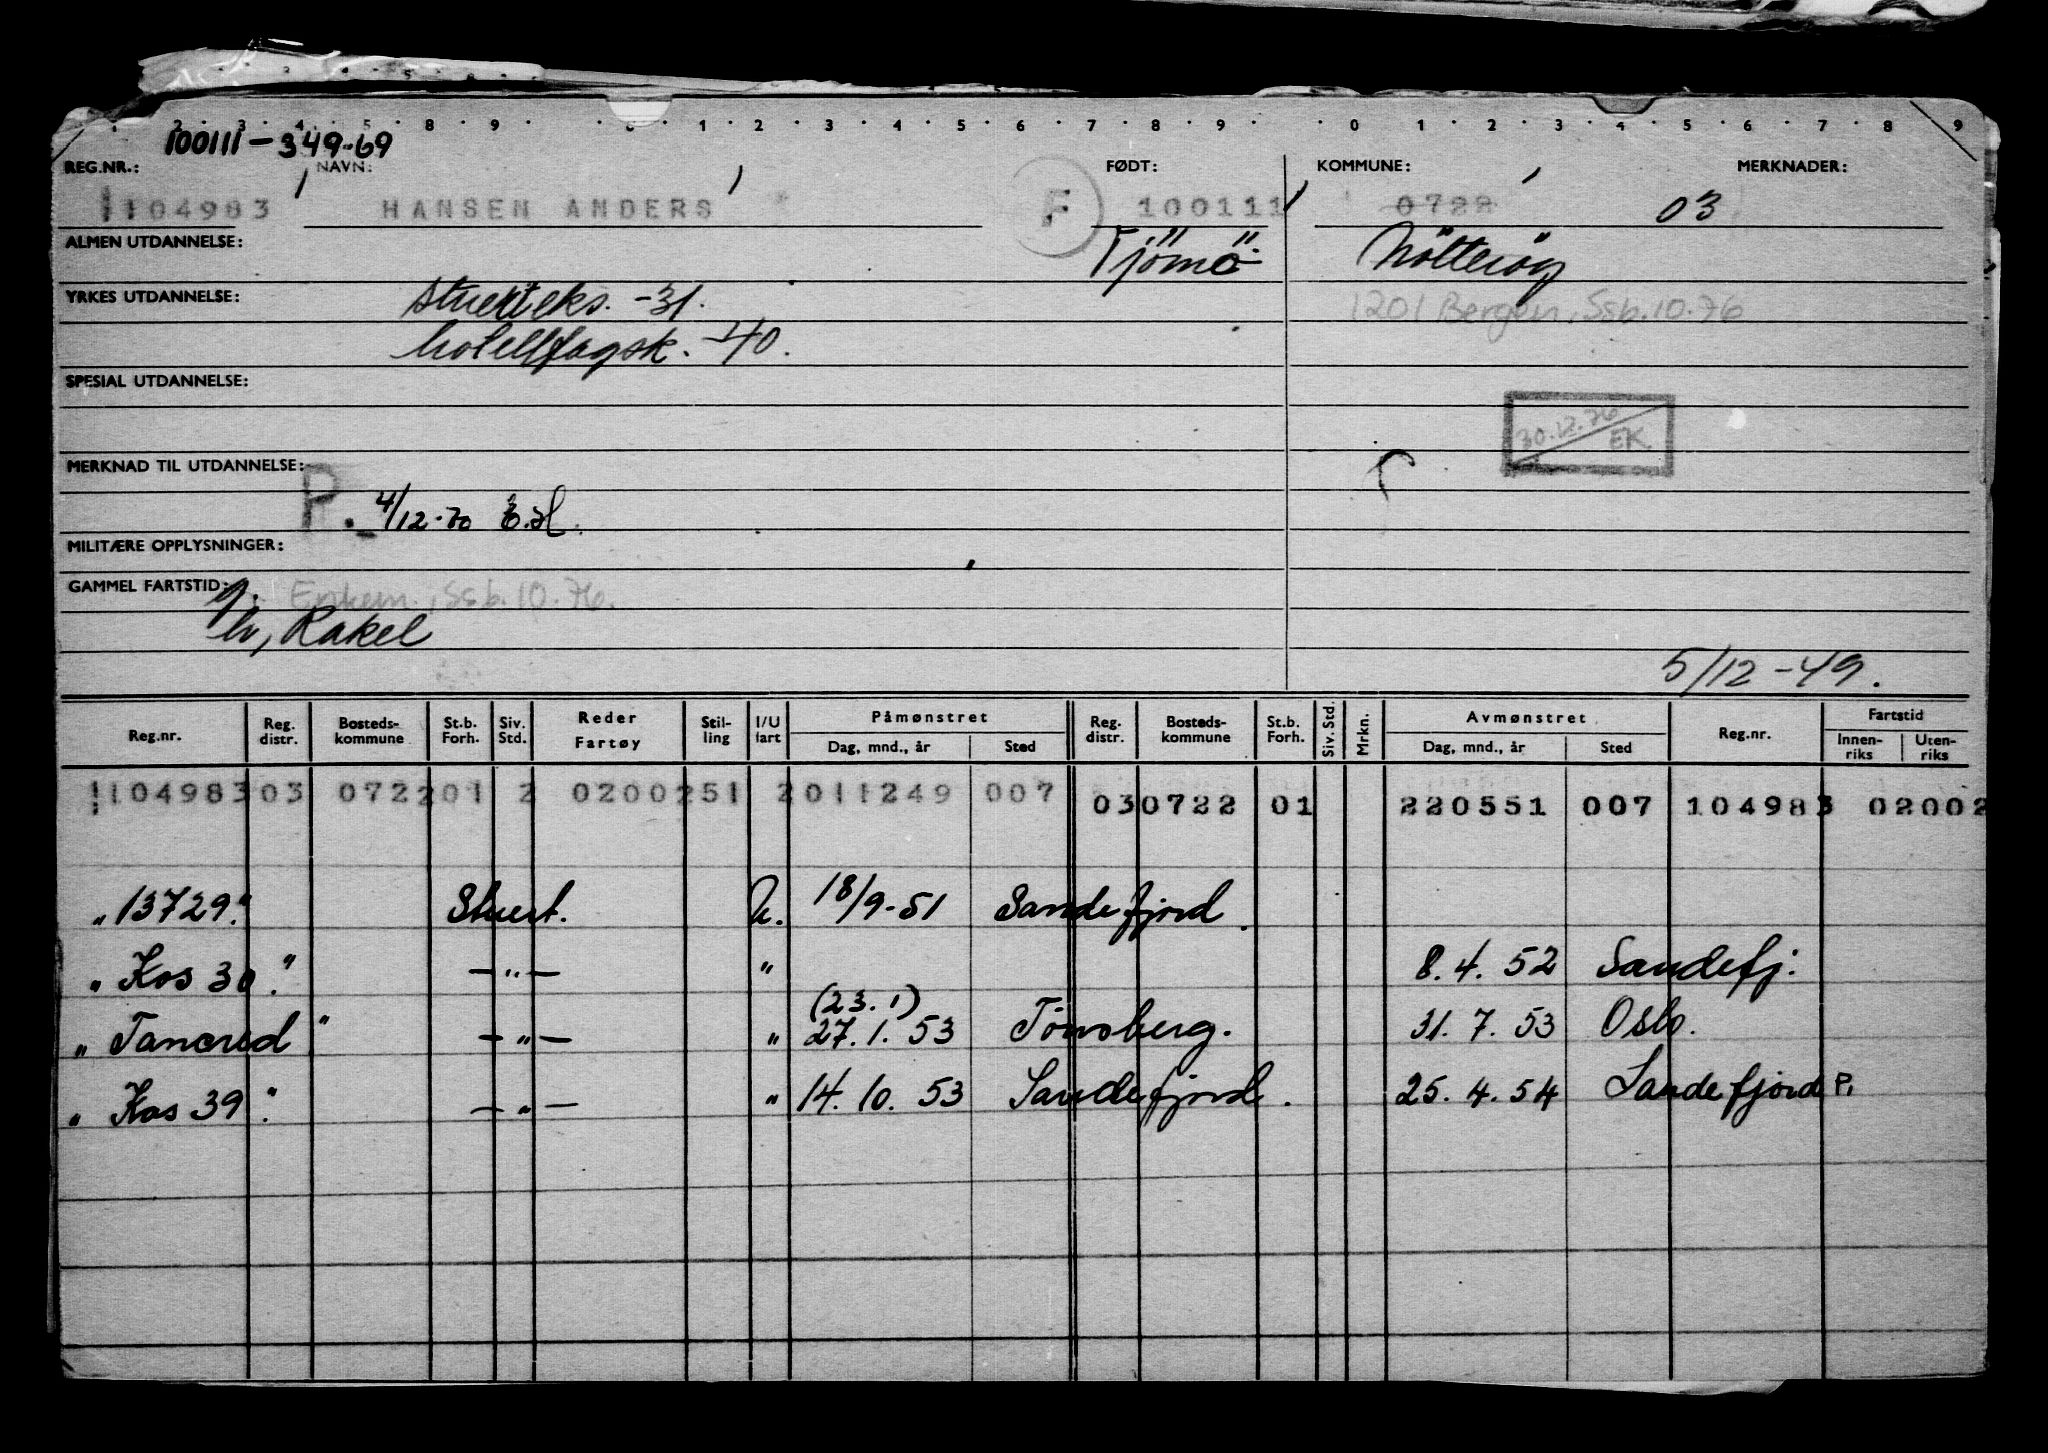 100111-349-69
REG.NR.: NAVN: FØDT: KOMMUNE: MERKNADER:
104983 HANSEN ANDERS F 100111 0722 03
ALMEN UTDANNELSE: Tjömö Nötteröy
YRKES UTDANNELSE: stuerteks. -31. 1201 Bergen, Ssb. 10.76
hotellfagsk. -40.
SPESIAL UTDANNELSE:
30.12.76 EK.
MERKNAD TIL UTDANNELSE:
P. 4/12-70 E.H.
MILITÆRE OPPLYSNINGER:
GAMMEL FARTSTID: g. Enkem., Ssb. 10.76.
h, Rakel
5/12-49.
Reg.nr. Reg. distr. Bosteds-kommune St.b. Forh. Siv. Std. Reder Fartøy Stil-ling I/U fart Påmønstret Reg. distr. Bosteds-kommune St.b. Forh. Siv. Std. Mrkn. Avmønstret Reg.nr. Fartstid
Dag, mnd., år Sted Dag, mnd., år Sted Innen-riks Uten-riks
104983 03 0722 01 2 0200251 2 011249 007 03 0722 01 220551 007 104983 02002
"13729." Stuert. U. 18/9-51 Sandefjord.
"Kos 30." -"- " 8.4.52 Sandefj.
(23.1)
"Tancred" -"- " 27.1.53 Tönsberg. 31.7.53 Oslo.
"Kos 39." -"- " 14.10.53 Sandefjord. 25.4.54 Sandefjord P.